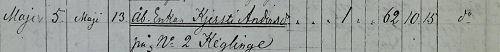 Maji 5. Maji 13. åb. Enkan Kjersti Andersd. . . 1 . . 62 10 15 do
på No 2 Kiglinge